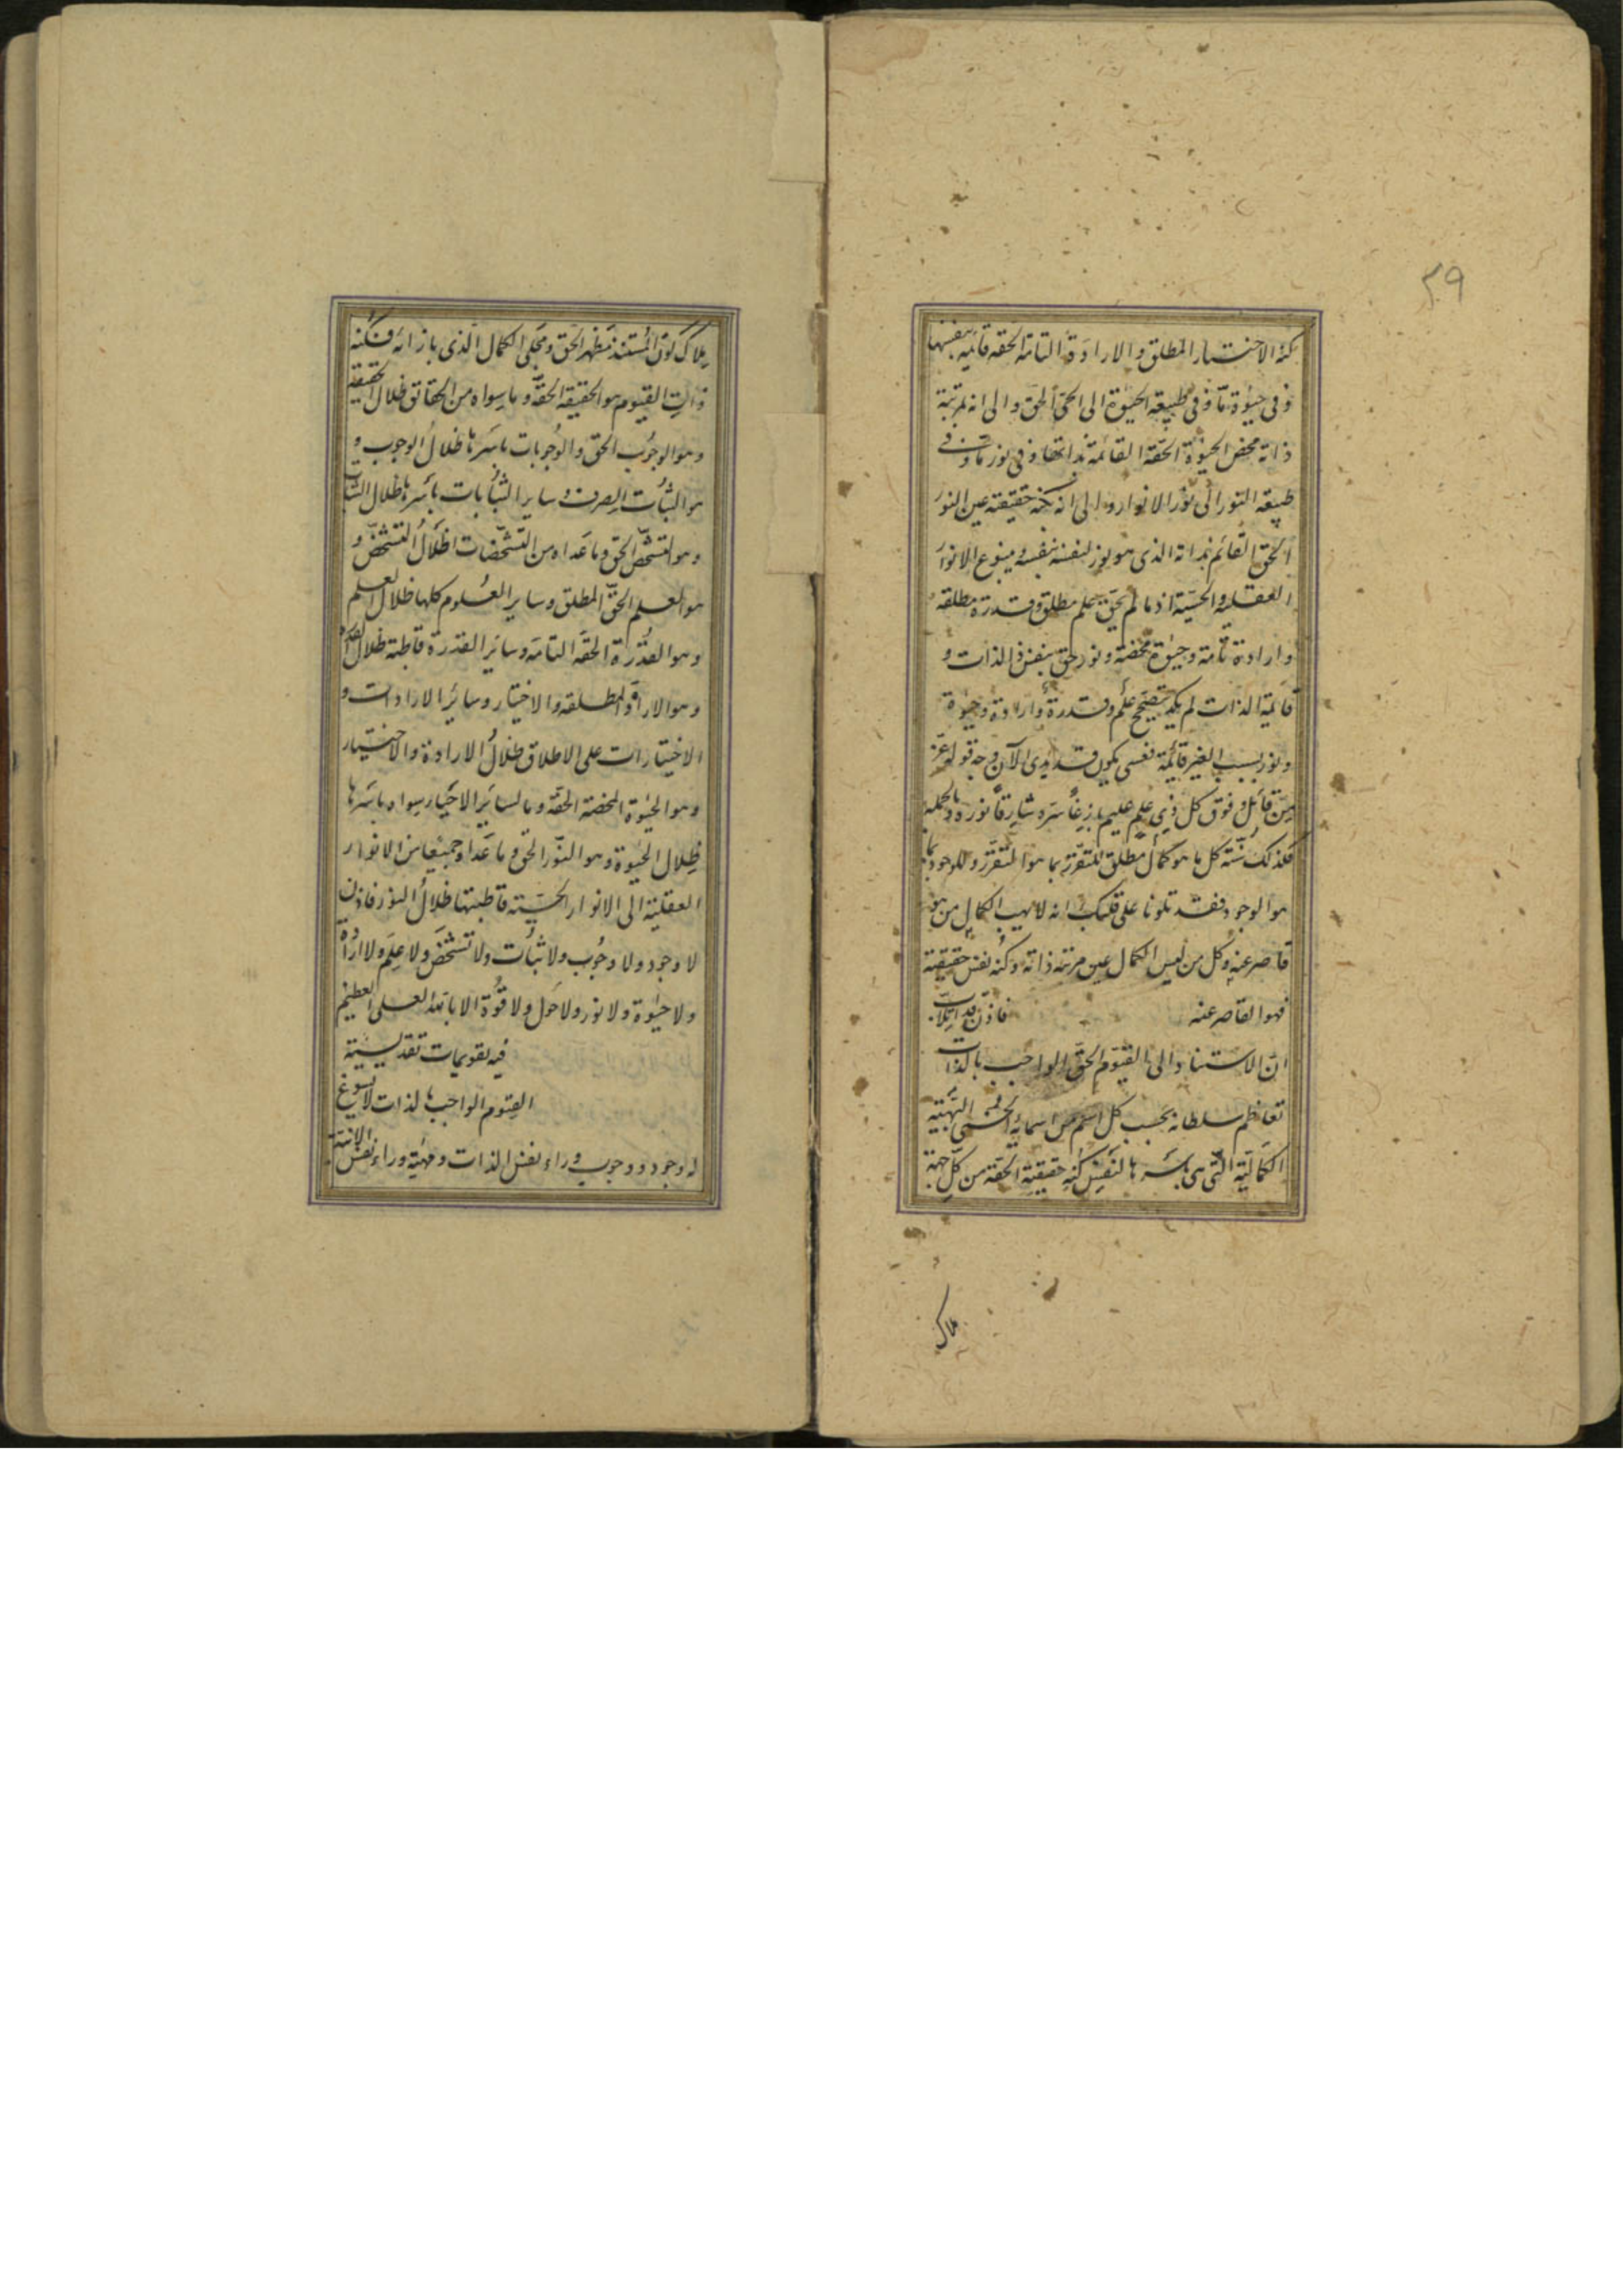 ٣٩
كنه الاختيار المطلق والارادة التامة الحقه قائمه بنفسها
وفى حيوة ما وفى طبيعة الحيوة الى الحى الحق والى انه بمرتبة
ذاته محض الحيوة الحقة القائمة بذاتها وفى نور ما وفى
طبيعة النور الى نور الانوار والى انه بكنه حقيقته عين النور
الحق القائم بذاته الذى هو نور لنفسه بنفسه وينبوع الانوار
العقلية والحسية اذ ما لم يحق علم مطلق وقدرة مطلقة
وارادة تامة وحيوة محضة ونور حق بنفس الذات و
قائمية الذات لم يكد يتصحح علم وقدرة وارادة وحيوة
ونور بسبب الغير قائمة فعسى يكون قد بدى الآن وجه قوله عز
من قائل وفوق كل ذى علم عليم بازغا سره وشارقا نوره وبالجملة
فكذلك سنة كل ما هو كمال مطلق للمتقرر بما هو المتقرر وللوجود بما
هو الوجود فقد تلونا على قلبك انه لا يهب الكمال من هو
قاصر عنه وكل من ليس الكمال عين مرتبة ذاته وكنه نفس حقيقته
فهو القاصر عنه فاذن قد
ان الاستناد الى القيوم الحق الواجب بالذات
تعاظم سلطانه بحسب كل اسم من اسمائه الحسنى
الكمالية التى هى باسرها لنفس كنه حقيقته الحقة من كل جهة
ملاك
ملاك كون المستند مظهر الحق ومجلى الكمال الذى بازائه فكنه
ذات القيوم هو الحقيقة الحقة وما سواه من الحقائق ظلال الحقيقة
وهو الوجوب الحق والوجوبات باسرها ظلال الوجوب و
هو الثبات الصرف وساير الثباتات باسرها ظلال الثبات
وهو التشخص الحق وما عداه من التشخصات اظلال التشخص و
هو العلم الحق المطلق وساير العلوم كلها ظلال العلم
وهو القدرة الحقة التامة وسائر القدرة قاطبة ظلال القدرة
وهو الارادة المطلقه والاختيار وسائر الارادات و
الاختيارات على الاطلاق ظلال الارادة والاختيار
وهو الحيوة المحضة الحقة وما لسائر الاحياء سواه باسرها
ظلال الحيوة وهو النور الحق وما عداه جميعا من الانوار
العقلية الى الانوار الحسية قاطبتها ظلال النور فاذن
لا وجود ولا وجوب ولا ثبات ولا تشخص ولا علم ولا ارادة
ولا حيوة ولا نور ولا حول ولا قوة الا بالله العلى العظيم
فيه تقويمات تقديسية
القيوم الواجب بالذات لا يسوغ
له وجود ووجوب وراء نفس الذات ومهية وراء نفس الانية